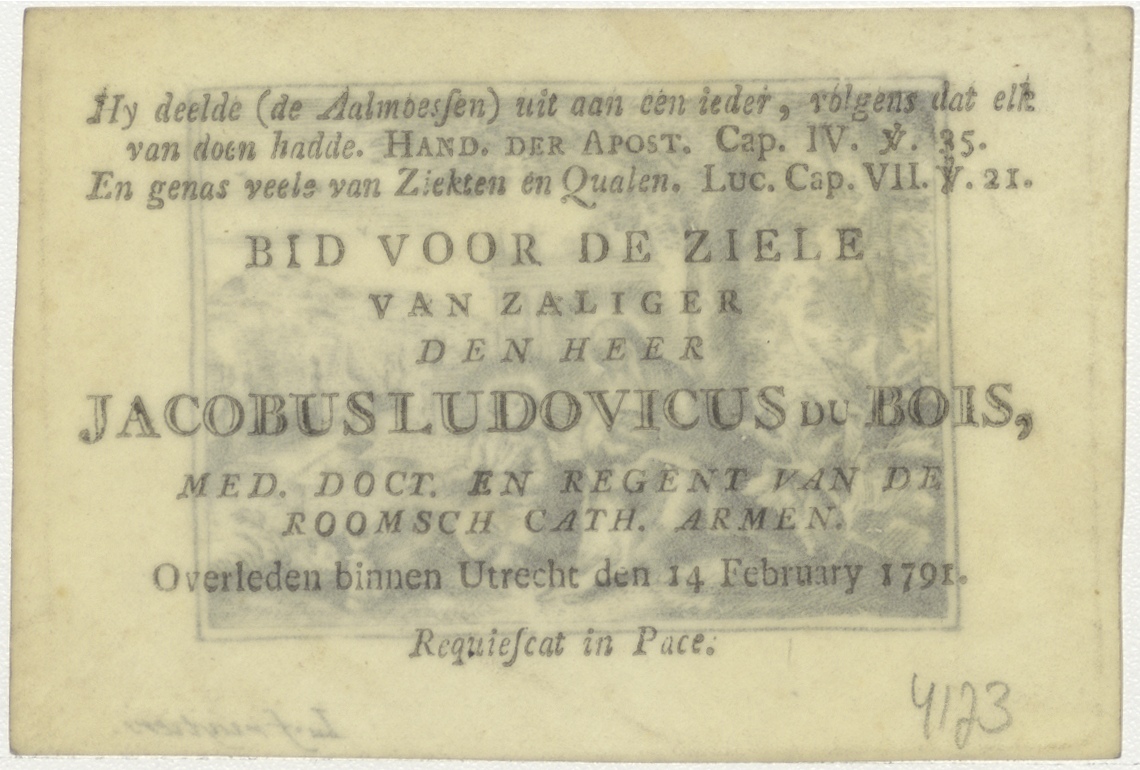 Hy deelde (de Aalmoesſen) uit aan een ieder, volgens dat elk
van doen hadde. HAND. DER APOST. Cap. IV. ℣. 35.
En genas veele van Ziekten en Qualen. Luc. Cap. VII. ℣. 21.
BID VOOR DE ZIELE
VAN ZALIGER
DEN HEER
JACOBUS LUDOVICUS DU BOIS,
MED. DOCT. EN REGENT VAN DE
ROOMSCH CATH. ARMEN.
Overleden binnen Utrecht den 14 February 1791.
Requieſcat in Pace.
4173